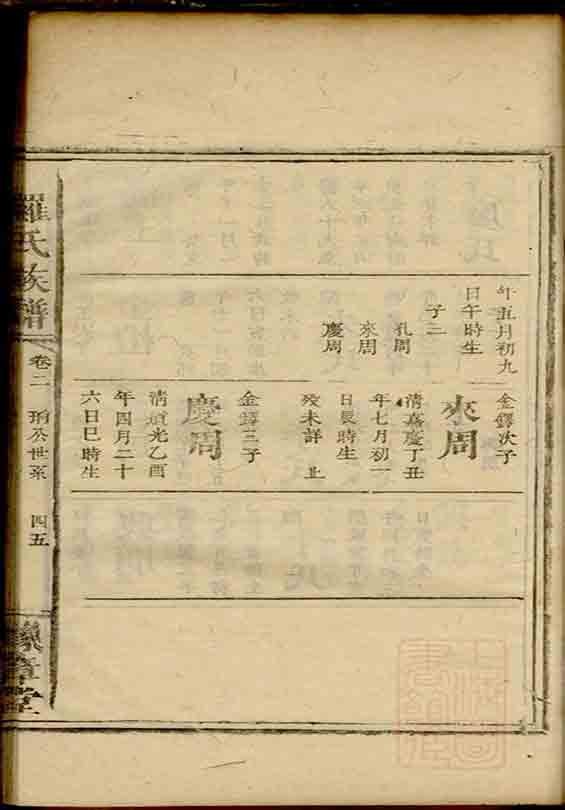 年五月初九
日午時生
子三
孔周
來周
慶周
金鐸次子
來周
清嘉慶丁丑
年七月初一
日辰時生
歿未詳 止
金鐸三子
慶周
清道光乙酉
年四月二十
六日巳時生
羅氏族譜
卷二
公世系
四五
豫章堂